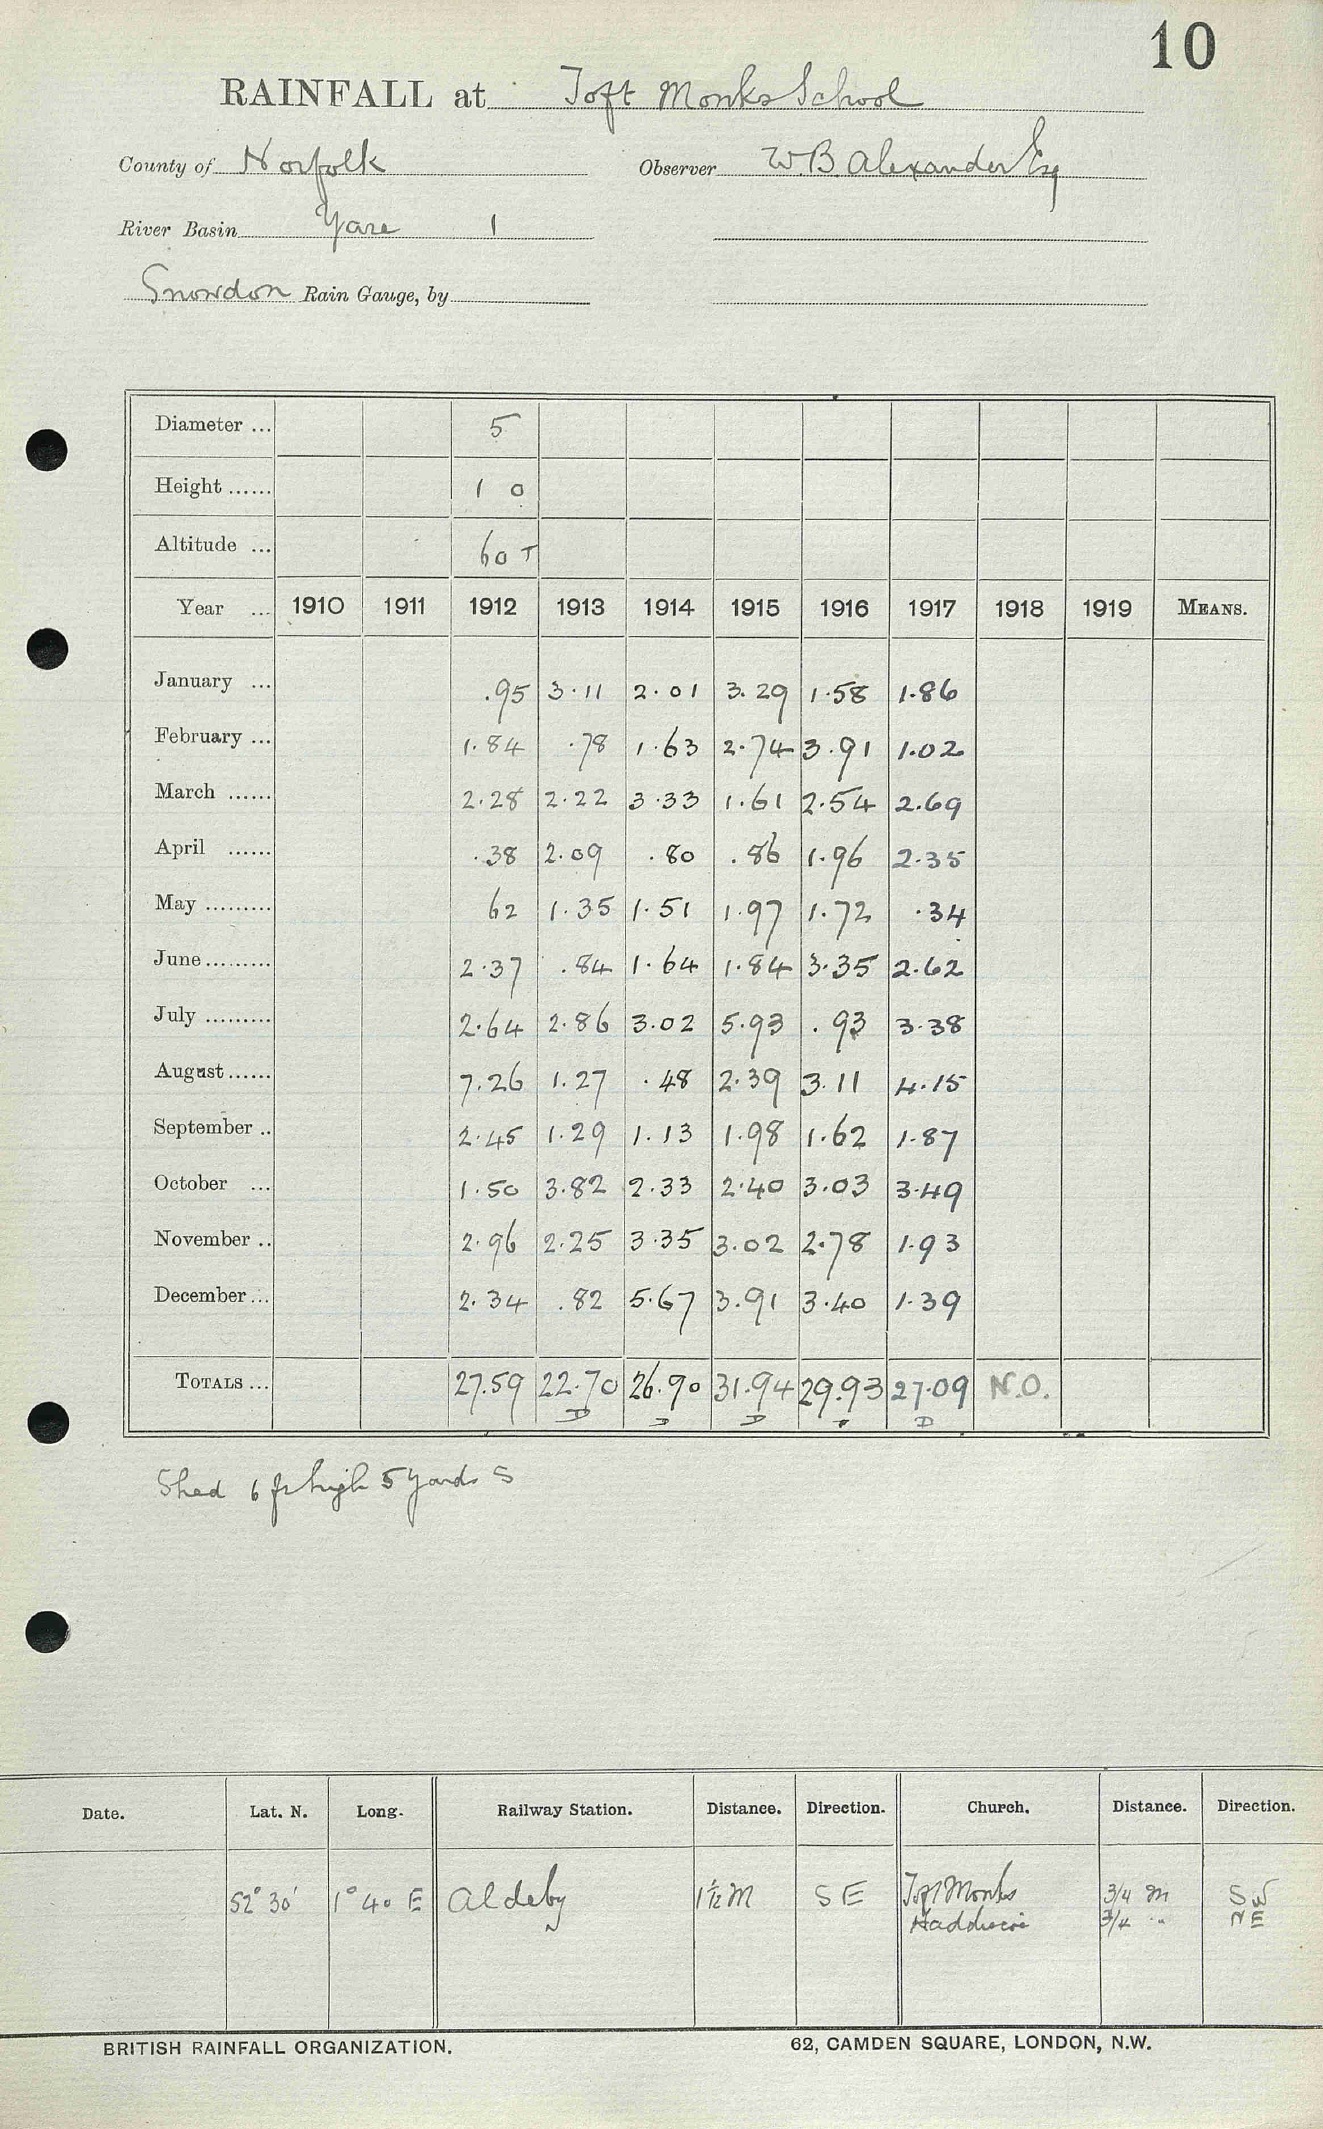 10
RAINFALL at Toft Monks School
County of Norfolk Observer W.B. Alexander Esq
River Basin Yare 1
Snowdon Rain Gauge, by
Diameter ... 5
Height ...... 1 0
Altitude ... 60 T
Year ... 1910 1911 1912 1913 1914 1915 1916 1917 1918 1919 MEANS.
January ... .95 3.11 2.01 3.29 1.58 1.86
February ... 1.84 .78 1.63 2.74 3.91 1.02
March ...... 2.28 2.22 3.33 1.61 2.54 2.69
April ...... .38 2.09 .80 .86 1.96 2.35
May ......... 62 1.35 1.51 1.97 1.72 .34
June ......... 2.37 .84 1.64 1.84 3.35 2.62
July ......... 2.64 2.86 3.02 5.93 .93 3.38
August ...... 7.26 1.27 .48 2.39 3.11 4.15
September .. 2.45 1.29 1.13 1.98 1.62 1.87
October ... 1.50 3.82 2.33 2.40 3.03 3.49
November .. 2.96 2.25 3.35 3.02 2.78 1.93
December ... 2.34 .82 5.67 3.91 3.40 1.39
TOTALS ... 27.59 22.70 26.90 31.94 29.93 27.09 N.O.
D D D D
Shed 6 ft high 5 yards S
Date. Lat. N. Long. Railway Station. Distance. Direction. Church. Distance. Direction.
52° 30' 1° 40 E Aldeby 1 1/2 M S E Toft Monks 3/4 m SW
3/4 " NE
BRITISH RAINFALL ORGANIZATION. 62, CAMDEN SQUARE, LONDON, N.W.